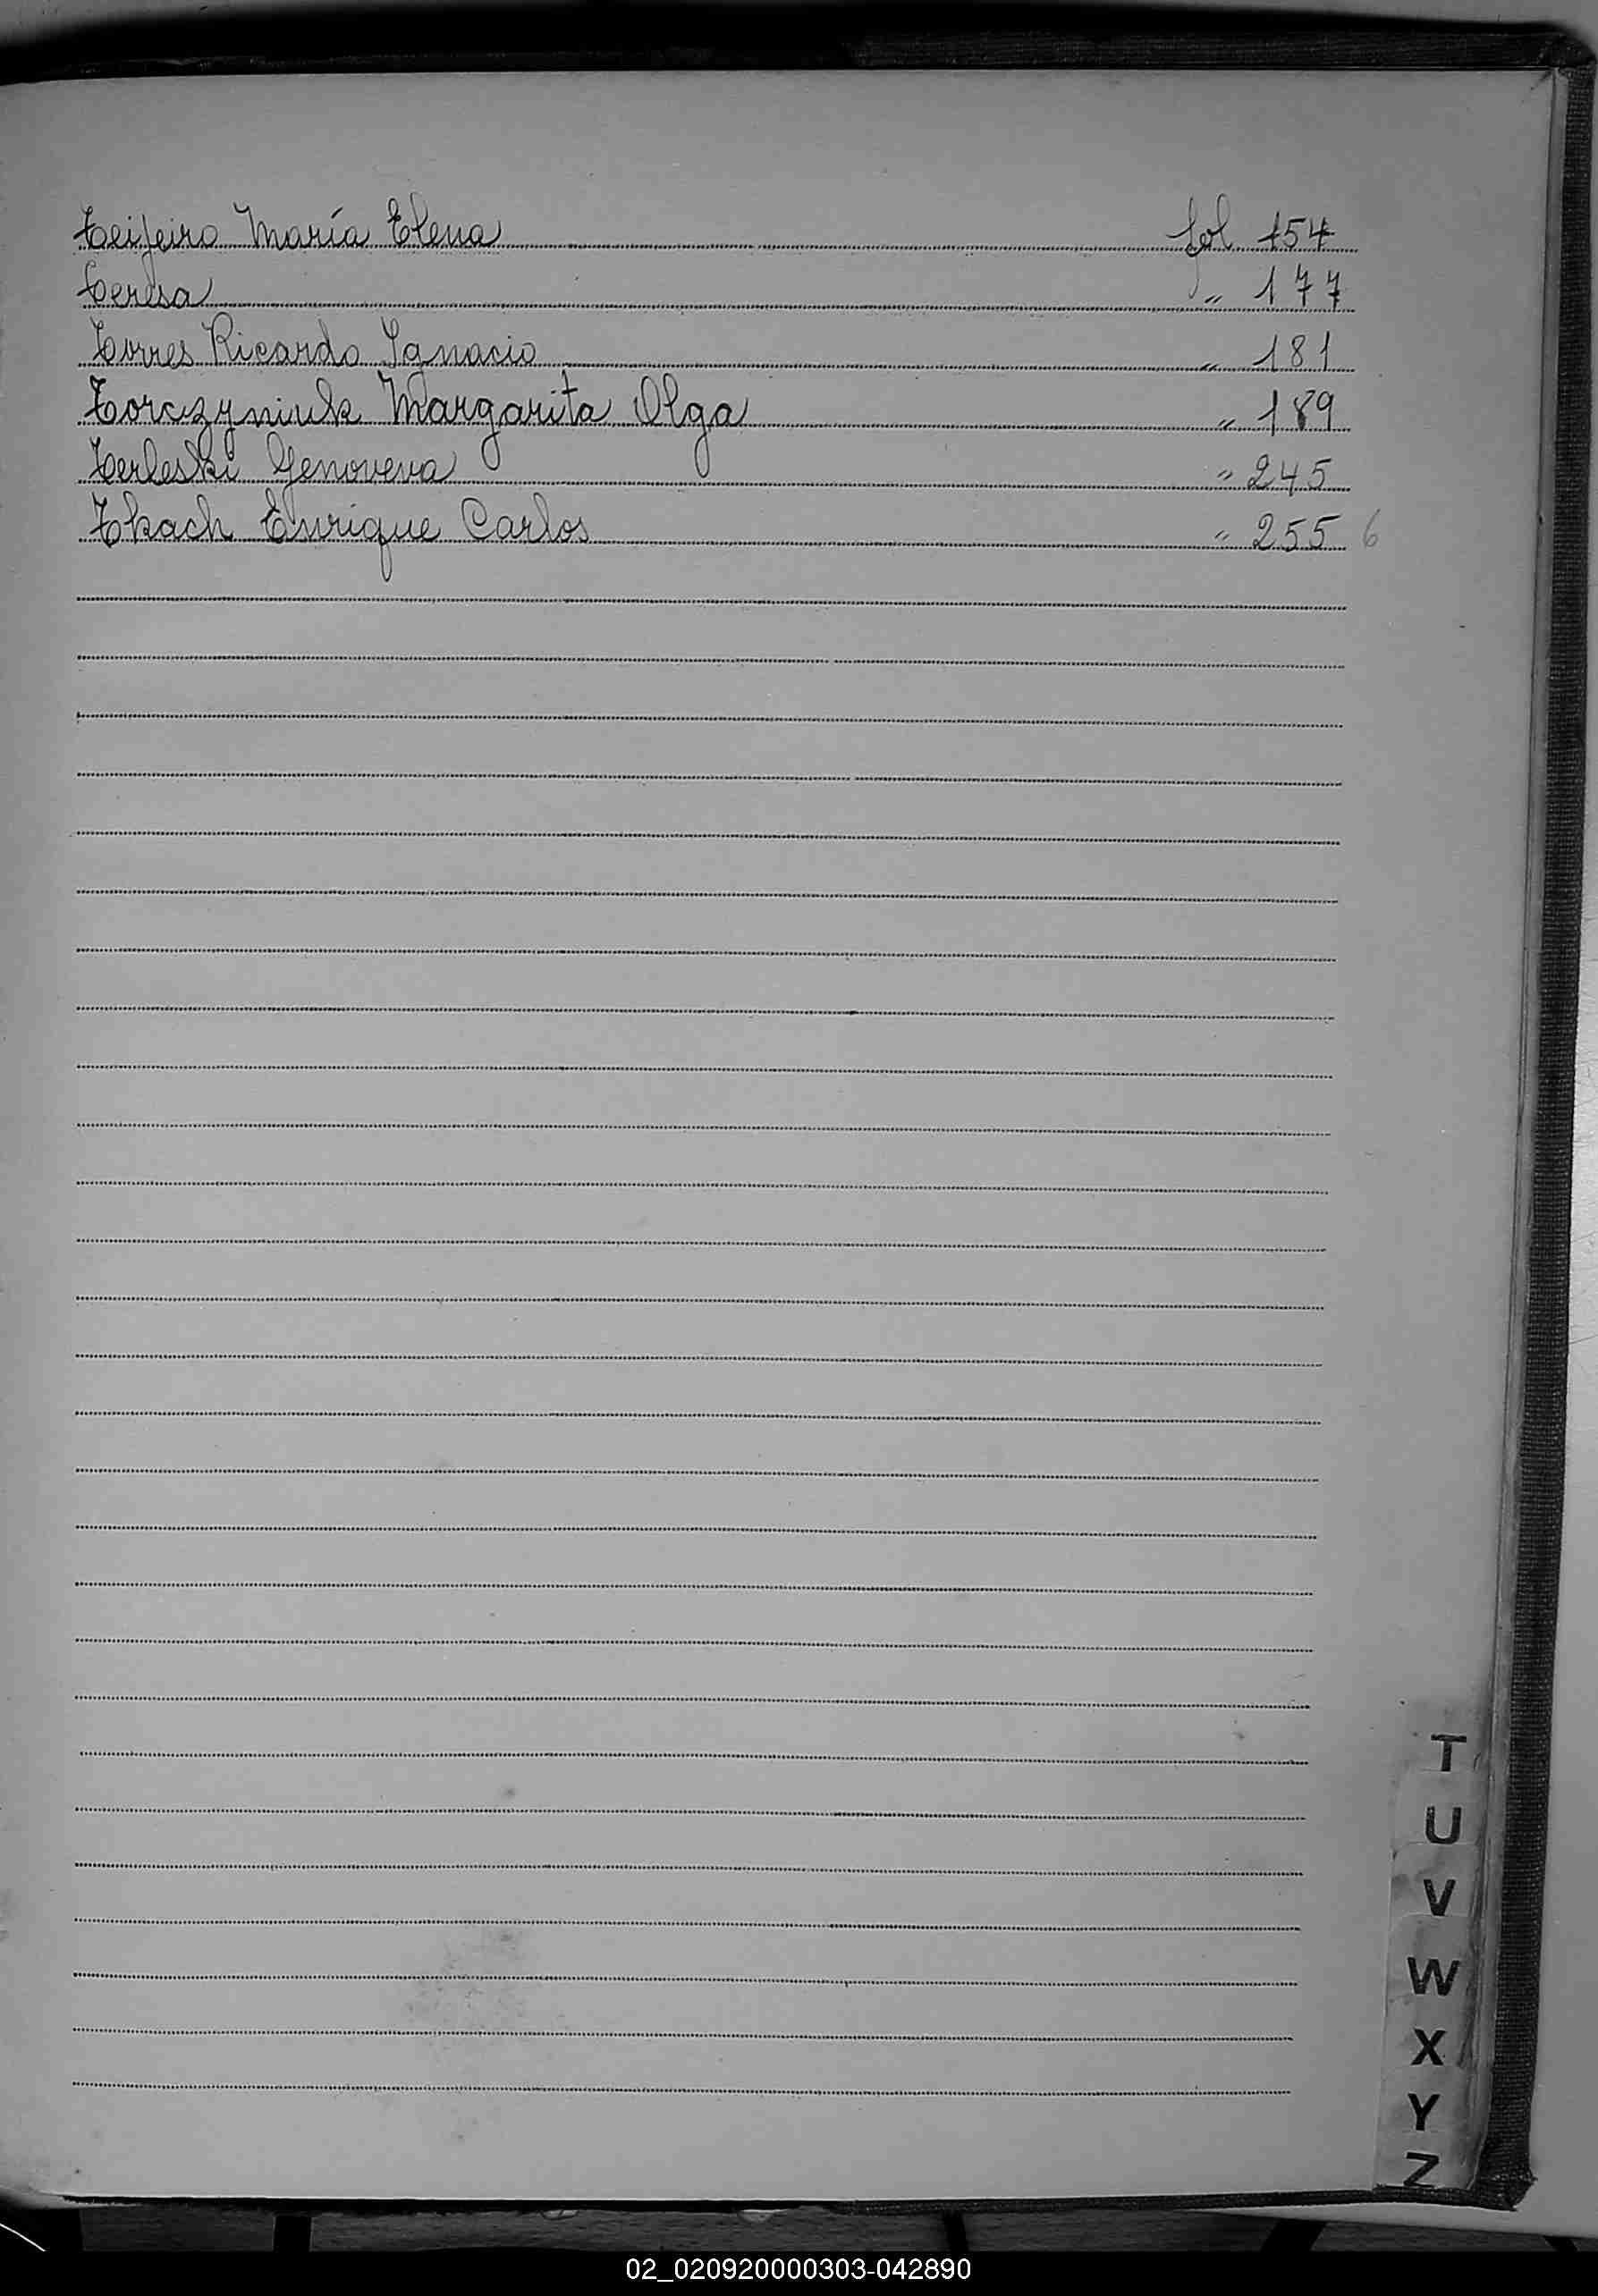 Teijeiro María Elena fol 154
Teresa " 177
Torres Ricardo Ignacio " 181
Torczyniuk Margarita Olga " 189
Terleski Genoveva " 245
Tkach Enrique Carlos " 255 6
T
U
V
W
X
Y
Z
02_020920000303-042890